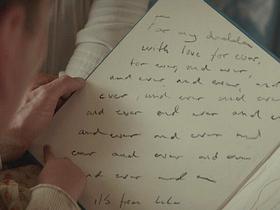 For my darling
with love for ever,
for ever, and ever,
and ever and ever, and
ever, and ever and ever
and ever and ever and e
and ever and ever and
ever and ever and ever
and ever and